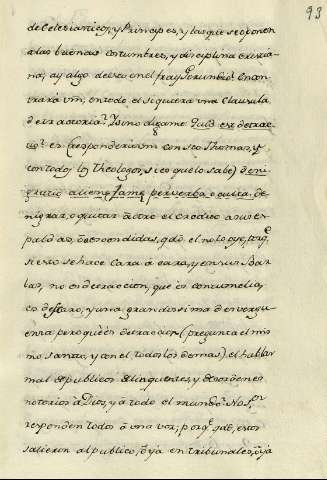 93
de Eclesiasticos, y Principes, y las que se oponen
a las buenas costumbres, y disciplina christia-
na; ay algo de esto en el fray Gerundio? Encon-
trará Vm, en todo el siquiera una clausula
detractoria? Y sino digame Quid est detrac-
tio? et Responderàn con Sto Thomas, y
con todos los Theologos, si es que lo sabe) deni-
gratio alienæ famæ per verba oculta. De
nigrar, o quitar à otro el credito a sus es-
paldas, ò à escondidas, qdo el no lo oye, porq.e
si esto se hace cara à cara, y en sus Bar-
bas, no es detraccion, que es contumelia,
es descaro, y una grandissima desverguen-
enza pero què es detraccion (pregunta el mis-
mo santo, y con el todos los demas) el hablar
mal de publicos delinquentes, y de desordenes
notorios à Dios, y à todo el mundo? No Sor
responden todos à una voz; porq.e qdo, estos
salieron al publico, ò ya en tribunales, ò ya